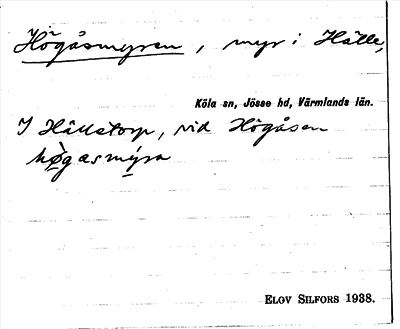 Högåsmyren, myr i Hälle,
Köla sn, Jösse hd, Värmlands län.
I Hällstorp, vid Högåsen
høgasmýra
ELOV SILFORS 1938.